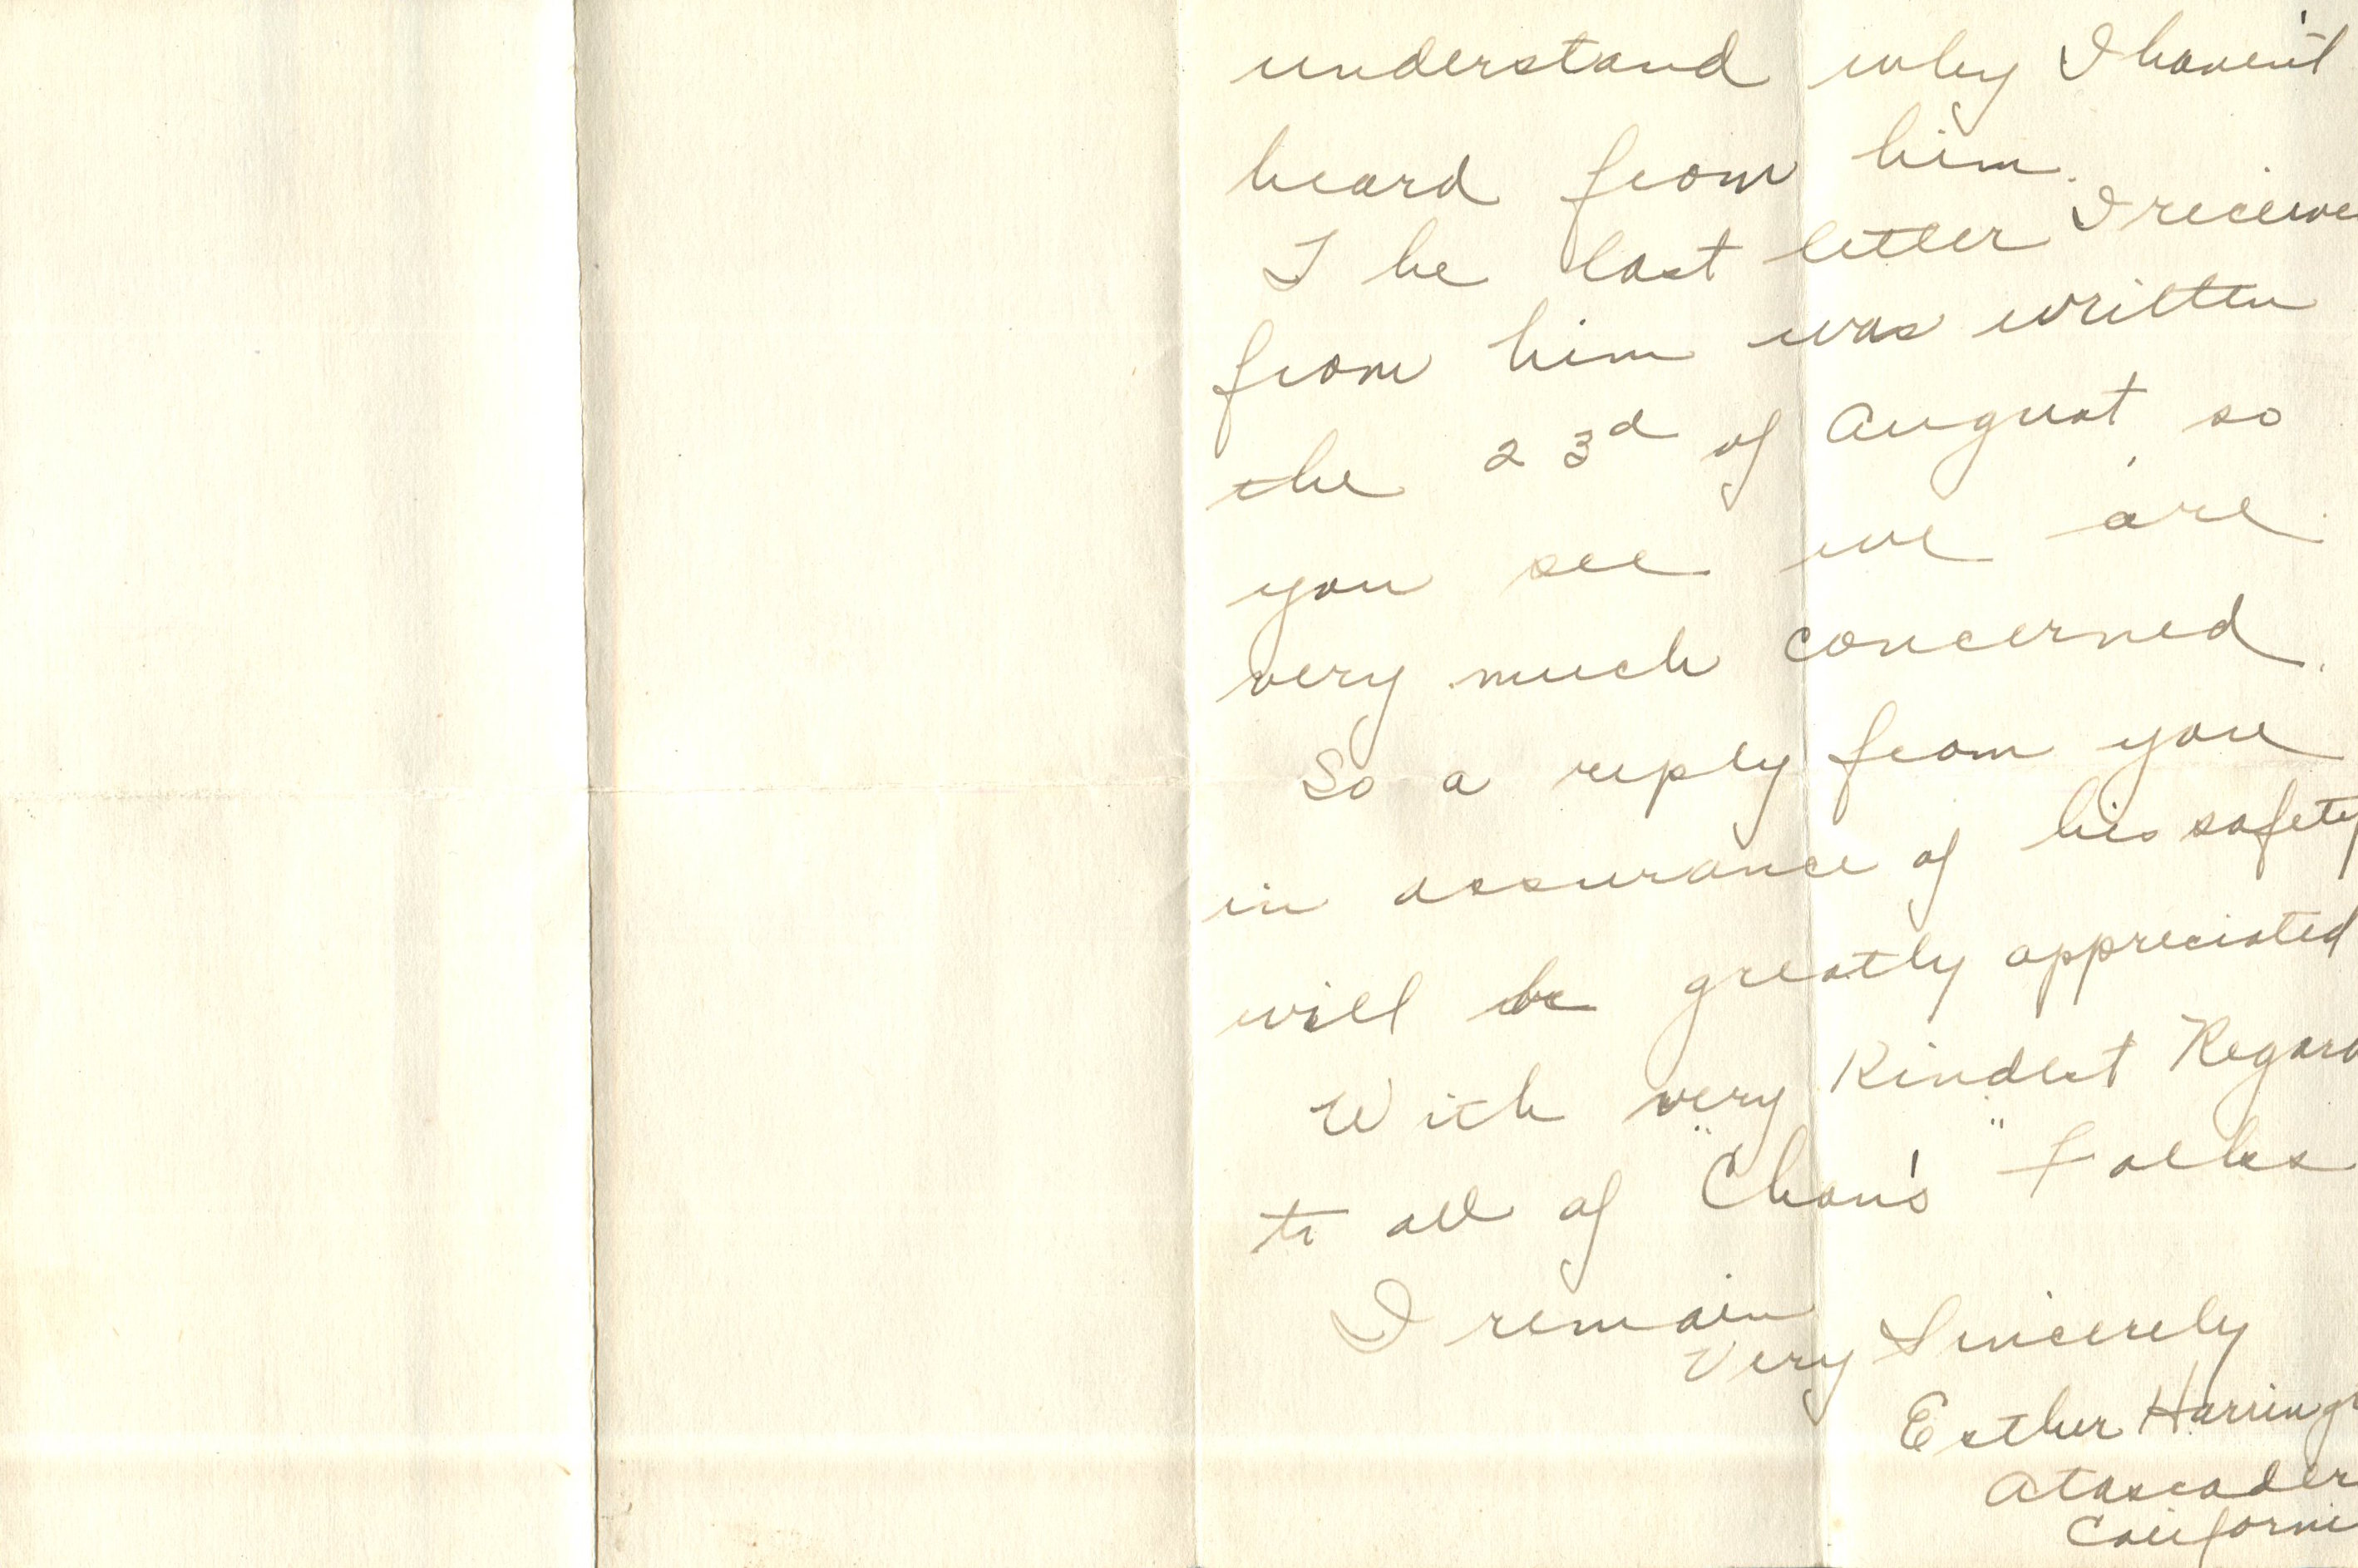 understand why I haven't
heard from him.
The last letter I receive
from him was written
the 23d of August, so
you see we are
very much concerned.
So a reply from you
in assurance of his safety
will be greatly appreciated
With very Kindest Regard
to all of "Chan's" Folks
I remain
Very Sincerely
Esther Harringt
Atascader
Californi